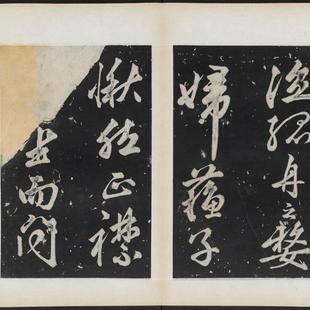 泣孤舟之嫠
婦蘇子
愀然正襟
坐而問